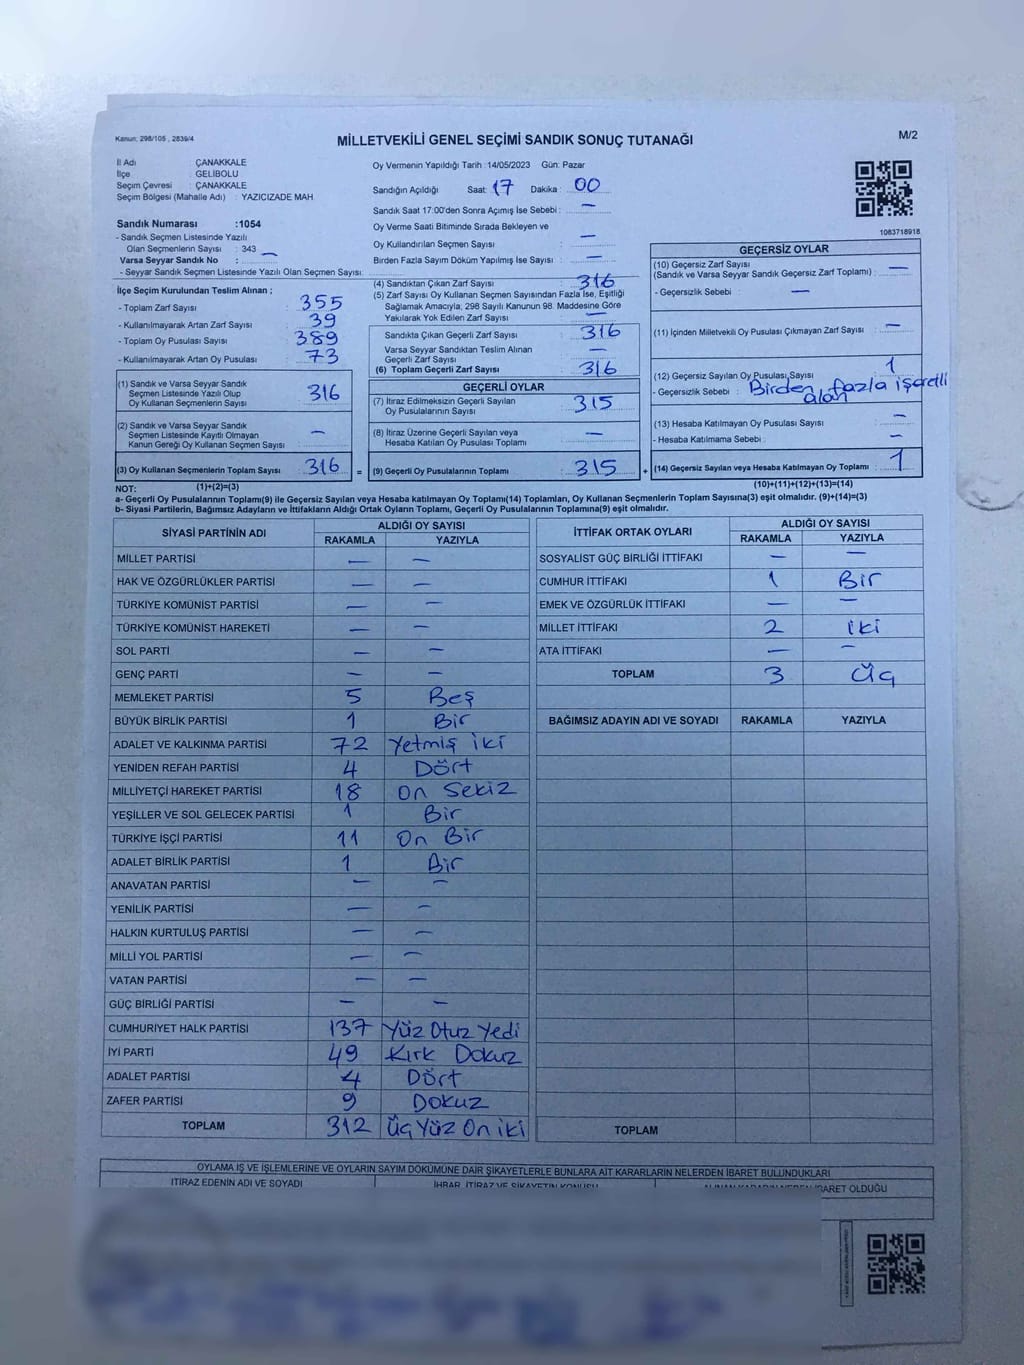 Kanun: 298/105 , 2839/4
MİLLETVEKİLİ GENEL SEÇİMİ SANDIK SONUÇ TUTANAĞI
M/2
İl Adı : ÇANAKKALE
İlçe : GELİBOLU
Seçim Çevresi : ÇANAKKALE
Seçim Bölgesi (Mahalle Adı) : YAZICIZADE MAH.
Sandık Numarası :1054
- Sandık Seçmen Listesinde Yazılı
Olan Seçmenlerin Sayısı : 343
Varsa Seyyar Sandık No : —
- Seyyar Sandık Seçmen Listesinde Yazılı Olan Seçmen Sayısı:
Oy Vermenin Yapıldığı Tarih :14/05/2023 Gün: Pazar
Sandığın Açıldığı Saat: 17 Dakika : 00
Sandık Saat 17:00'den Sonra Açımış İse Sebebi : —
Oy Verme Saati Bitiminde Sırada Bekleyen ve
Oy Kullandırılan Seçmen Sayısı : —
Birden Fazla Sayım Döküm Yapılmış İse Sayısı : —
1083718918
İlçe Seçim Kurulundan Teslim Alınan ;
- Toplam Zarf Sayısı : 355
- Kullanılmayarak Artan Zarf Sayısı : 39
- Toplam Oy Pusulası Sayısı : 389
- Kullanılmayarak Artan Oy Pusulası : 73
(1) Sandık ve Varsa Seyyar Sandık
Seçmen Listesinde Yazılı Olup
Oy Kullanan Seçmenlerin Sayısı 316
(2) Sandık ve Varsa Seyyar Sandık
Seçmen Listesinde Kayıtlı Olmayan
Kanun Gereği Oy Kullanan Seçmen Sayısı —
(3) Oy Kullanan Seçmenlerin Toplam Sayısı 316 =
(4) Sandıktan Çıkan Zarf Sayısı : 316
(5) Zarf Sayısı Oy Kullanan Seçmen Sayısından Fazla İse, Eşitliği
Sağlamak Amacıyla, 298 Sayılı Kanunun 98. Maddesine Göre
Yakılarak Yok Edilen Zarf Sayısı : —
Sandıkta Çıkan Geçerli Zarf Sayısı 316
Varsa Seyyar Sandıktan Teslim Alınan
Geçerli Zarf Sayısı —
(6) Toplam Geçerli Zarf Sayısı : 316
GEÇERLİ OYLAR
(7) İtiraz Edilmeksizin Geçerli Sayılan
Oy Pusulalarının Sayısı : 315
(8) İtiraz Üzerine Geçerli Sayılan veya
Hesaba Katılan Oy Pusulası Toplamı —
(9) Geçerli Oy Pusulalarının Toplamı 315 +
GEÇERSİZ OYLAR
(10) Geçersiz Zarf Sayısı
(Sandık ve Varsa Seyyar Sandık Geçersiz Zarf Toplamı) : —
- Geçersizlik Sebebi : —
(11) İçinden Milletvekili Oy Pusulası Çıkmayan Zarf Sayısı : —
(12) Geçersiz Sayılan Oy Pusulası Sayısı : 1
- Geçersizlik Sebebi : Birden fazla işaretli
alan
(13) Hesaba Katılmayan Oy Pusulası Sayısı : —
- Hesaba Katılmama Sebebi : —
(14) Geçersiz Sayılan veya Hesaba Katılmayan Oy Toplamı : 1
NOT: (1)+(2)=(3) (10)+(11)+(12)+(13)=(14)
a- Geçerli Oy Pusulalarının Toplamı(9) ile Geçersiz Sayılan veya Hesaba katılmayan Oy Toplamı(14) Toplamları, Oy Kullanan Seçmenlerin Toplam Sayısına(3) eşit olmalıdır. (9)+(14)=(3)
b- Siyasi Partilerin, Bağımsız Adayların ve İttifakların Aldığı Ortak Oyların Toplamı, Geçerli Oy Pusulalarının Toplamına(9) eşit olmalıdır.
SİYASİ PARTİNİN ADI ALDIĞI OY SAYISI
RAKAMLA YAZIYLA
MİLLET PARTİSİ — —
HAK VE ÖZGÜRLÜKLER PARTİSİ — —
TÜRKİYE KOMÜNİST PARTİSİ — —
TÜRKİYE KOMÜNİST HAREKETİ — —
SOL PARTİ — —
GENÇ PARTİ — —
MEMLEKET PARTİSİ 5 Beş
BÜYÜK BİRLİK PARTİSİ 1 Bir
ADALET VE KALKINMA PARTİSİ 72 Yetmiş iki
YENİDEN REFAH PARTİSİ 4 Dört
MİLLİYETÇİ HAREKET PARTİSİ 18 On Sekiz
YEŞİLLER VE SOL GELECEK PARTİSİ 1 Bir
TÜRKİYE İŞÇİ PARTİSİ 11 On Bir
ADALET BİRLİK PARTİSİ 1 Bir
ANAVATAN PARTİSİ — —
YENİLİK PARTİSİ — —
HALKIN KURTULUŞ PARTİSİ — —
MİLLİ YOL PARTİSİ — —
VATAN PARTİSİ — —
GÜÇ BİRLİĞİ PARTİSİ — —
CUMHURİYET HALK PARTİSİ 137 Yüz Otuz Yedi
İYİ PARTİ 49 Kırk Dokuz
ADALET PARTİSİ 4 Dört
ZAFER PARTİSİ 9 Dokuz
TOPLAM 312 Üç Yüz On iki
İTTİFAK ORTAK OYLARI ALDIĞI OY SAYISI
RAKAMLA YAZIYLA
SOSYALİST GÜÇ BİRLİĞİ İTTİFAKI — —
CUMHUR İTTİFAKI 1 Bir
EMEK VE ÖZGÜRLÜK İTTİFAKI — —
MİLLET İTTİFAKI 2 İki
ATA İTTİFAKI — —
TOPLAM 3 Üç
BAĞIMSIZ ADAYIN ADI VE SOYADI RAKAMLA YAZIYLA
TOPLAM
OYLAMA İŞ VE İŞLEMLERİNE VE OYLARIN SAYIM DÖKÜMÜNE DAİR ŞİKAYETLERLE BUNLARA AİT KARARLARIN NELERDEN İBARET BULUNDUKLARI
İTİRAZ EDENİN ADI VE SOYADI İHBAR, İTİRAZ VE ŞİKAYETİN KONUSU ALINAN KARARIN NEDEN İBARET OLDUĞU